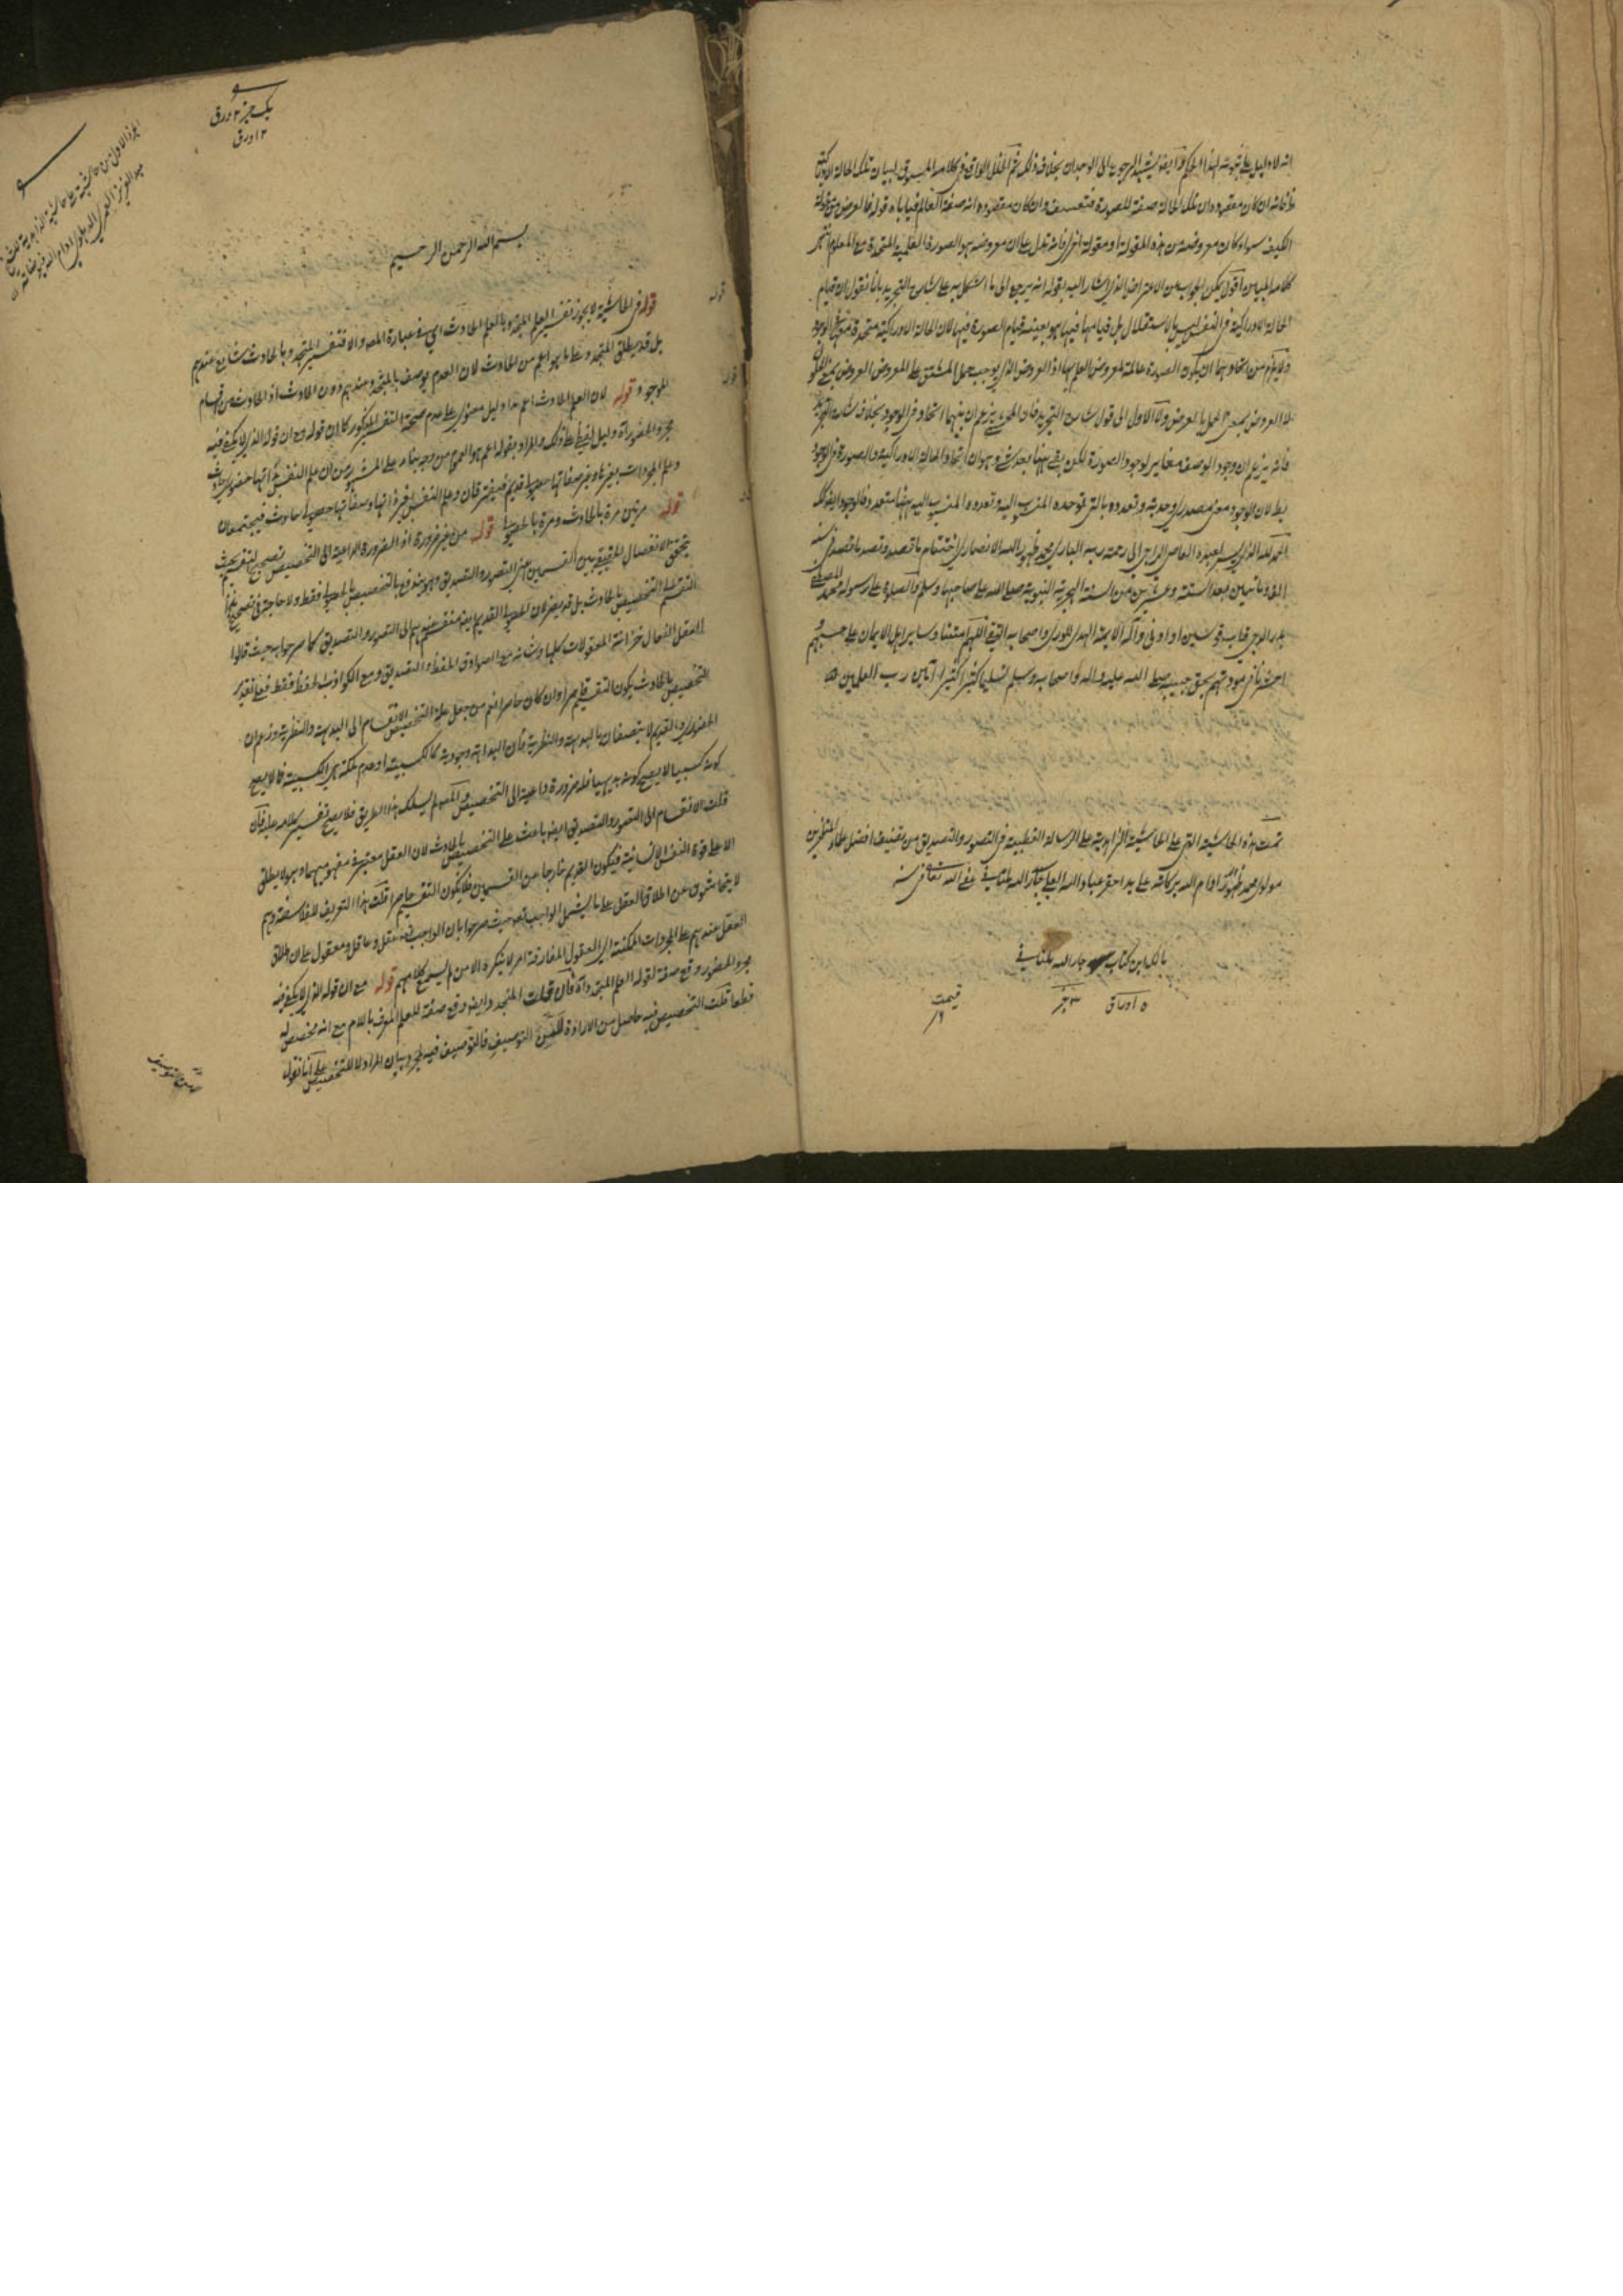 انه لا دليل على ثبوته لهذا الحكم وايضا يشهد الرجوع الى الوجدان بخلاف ذلك ثم الخلل الواقع في كلامه المسوق لبيان تلك الحالة الادراكية
فانه ان كان مقصوده ان تلك الحالة صفة للصورة فتعسف وان كان مقصوده انه صفة العالم فياباه قوله فالعرض من مقولة
الكيف سواء كان معروضه من هذه المقولة او مقولة اخرى فانه تدل على ان معروضه هو الصورة العلمية المتحدة مع المعلوم انتهى
كلامه اقول يمكن الجواب عن الاعتراض الذي اشار اليه بقوله انه يرجع الى ما اشكل به على شارح التجريد بانا نقول ان قيام
الحالة الادراكية في النفس ليس بالاستقلال بل قيامها فيها هو بعينه قيام الصورة فيها لان الحالة الادراكية متحدة معها في الوجود
ولا يلزم من اتحادهما ان يكون الصورة عالمة لعروض العلم بها اذ العروض الذي يوجب حمل المشتق على المعروض العروض بمعنى
لا العروض بمعنى الحمل بالعرض والا الاول الى قول شارح التجريد فان المحشي يزعم ان بينهما اتحاد في الوجود بخلاف شارح التجريد
فانه يزعم ان وجود الوصف مغاير لوجود الصورة لكن بقي بينهما بعد شيء وهو ان اتحاد الحالة الادراكية والصورة في الوجود
بطلان الوجود معنى مصدري وحدته وتعدده بالتي توحده المنسوب اليه وتعدده المنسوب اليه بينهما متعدد فالوجود ايضا كذلك
الحمد لله الذي يسر لعبده العاصي الراجي الى رحمة ربه الباري محمد ظهور الله الانصاري اختتام ما تصدى وتصدى ما قصد في سنة
المؤ ثمانين بعد الستة وعشرين من السنة الهجرية النبوية صلى الله على صاحبها وسلم والصلوة على رسوله محمد المصطفى
بدر الدجى قاب قوسين او ادنى وآله الائمة الهدى للورى واصحابه التقى اللهم امتنا وساير اهل الايمان على حبهم و
احشرنا في مودتهم بحق حبيبه صلى الله عليه واله واصحابه وسلم تسليما كثيرا كثيرا آمين رب العلمين
تمت هذه الحاشية التي على الحاشية الزاهدية على الرسالة القطبية في التصور والتصديق من تصنيف افضل علماء المتبحرين
مولوي محمد ظهور الله ادام الله بركاته على يد احقر عباد الله العلي جار الله عفي الله تعالى في سنة
مالك اين كتاب جار الله
٥ اوراق ٣ جز
قيمت
يك جز ٢ ورق
١٢ ورق
الجزء الاول من حاشية على حاشية الزاهدية
عبد العزيز العمري الدهلوي ادام الله فيوضاته
بسم الله الرحمن الرحيم
قوله في الحاشية لا يجوز تفسير العلم المتجدد بالعلم الحادث اي في عبارة المص والا فتفسير المتجدد بالحادث شايع عندهم
بل قد يطلق المتجدد على ما هو اعم من الحادث لان العدم يوصف بالمتجدد عندهم دون الحادث اذ الحادث من اقسام
الموجود قوله لان العلم الحادث اعم هذا دليل معنوي على عدم صحة التفسير المذكور كما ان قوله مع ان قوله الذي لا يكفي فيه
مجرد الحضور آه دليل لفظي على ذلك والمراد بقوله اعم هو العموم من وجه بناء على المشهور من ان علم النفس بذاتها حضوري حادث
وعلم المجردات بغيرها وغير صفاتها حصولي قديم فيفترقان وعلم النفس بغير ذاتها وصفاتها حصولي حادث فيجتمعان
قوله مرتين مرة بالحادث ومرة بالحصولي قوله من غير ضرورة اذ الضرورة الداعية الى التخصيص تصحيح التقسيم بحيث
يتحقق الانفصال الحقيقي بين القسمين اعني التصور والتصديق وهو يندفع بالتخصيص بالحصولي فقط ولا حاجة في تصحيح
التقسيم الى التخصيص بالحادث بل قد يضر لان الحصولي القديم ايضا منقسم عندهم الى التصور والتصديق كما صرحوا به حيث قالوا
العقل الفعال خزانة المعقولات كلها وشانه مع الصوادق الحفظ والتصديق ومع الكواذب الحفظ فقط فعلى تقدير
التخصيص بالحادث يكون التقسيم حاصرا وان كان حاصرا فمن جعل علة التخصيص الانقسام الى البداهة والنظرية وزعم ان
الحضوري والقديم لا يتصفان بالبداهة والنظرية فان البداهة وجودية كالكسبية او عدم ملكة هي الكسبية فما لا يصح
كونه كسبيا لا يصح كونه بديهيا فله ضرورة داعية الى التخصيص والمص لم يسلك هذا الطريق فلا يصح تفسير كلامه عليه فان
قلت الانقسام الى التصور والتصديق ايضا باعث على التخصيص بالحادث لان العقل معتبر في مفهوميهما وهو لا يطلق
الا على قوة النفس الانسانية فيكون القديم خارجا عن القسمين فلا يكون التقسيم حاصرا قلت هذا التعريف للفلاسفة وهم
لا يتحاشون عن اطلاق العقل على ما يشمل الواجب تعالى حيث صرحوا بان الواجب تعالى عقل وعاقل ومعقول على ان اطلاق
العقل عندهم على المجردات الممكنة اي العقول المفارقة امر لا ينكره الا من لم يسمع كلامهم قوله مع ان قوله الذي لا يكفي فيه
مجرد الحضور وقع صفة لقوله العلم المتجدد آه فان قلت المتجدد ايضا وقع صفة للعلم المعرف باللام مع انه مخصص له
قطعا قلت التخصيص فيه حاصل من الارادة لا من التوصيف فالتوصيف فيه لمجرد بيان المراد لا للتخصيص على انا نقول